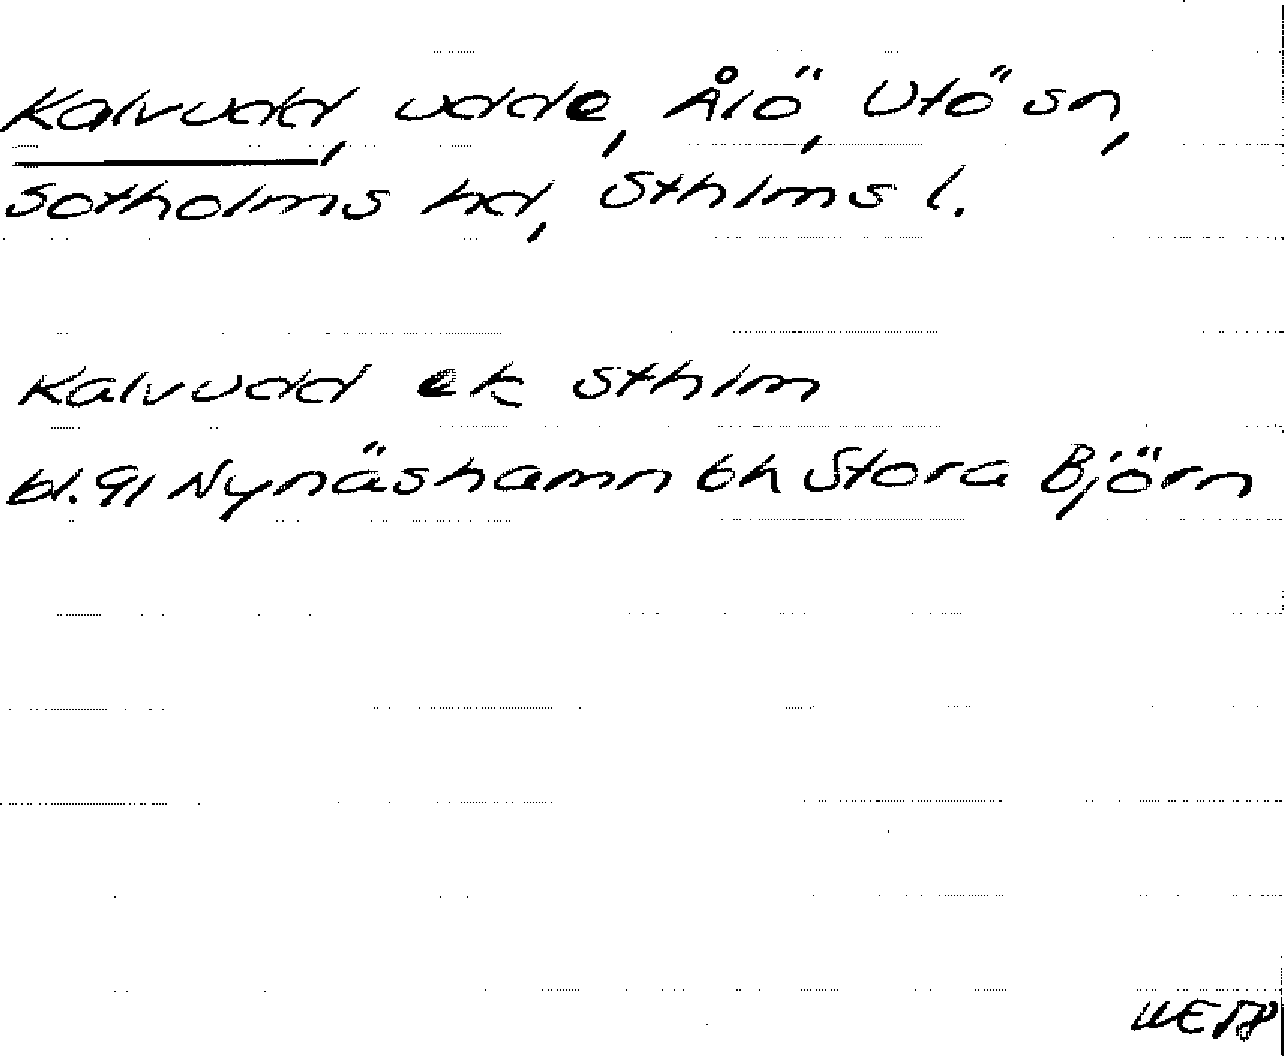 Kalvudd, udde, Ålö, Utö sn,
Sotholms hd, Sthlms l.
Kalvudd ek Sthlm
bl. 91 Nynäshamn bh Stora Björn